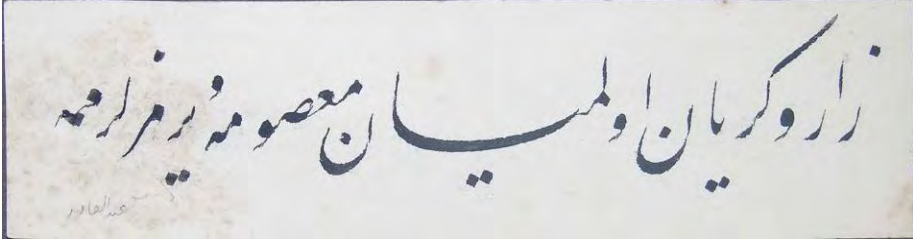 زار و كريان اولميان معصومه ويرمزلر ممه
عبدالقادر